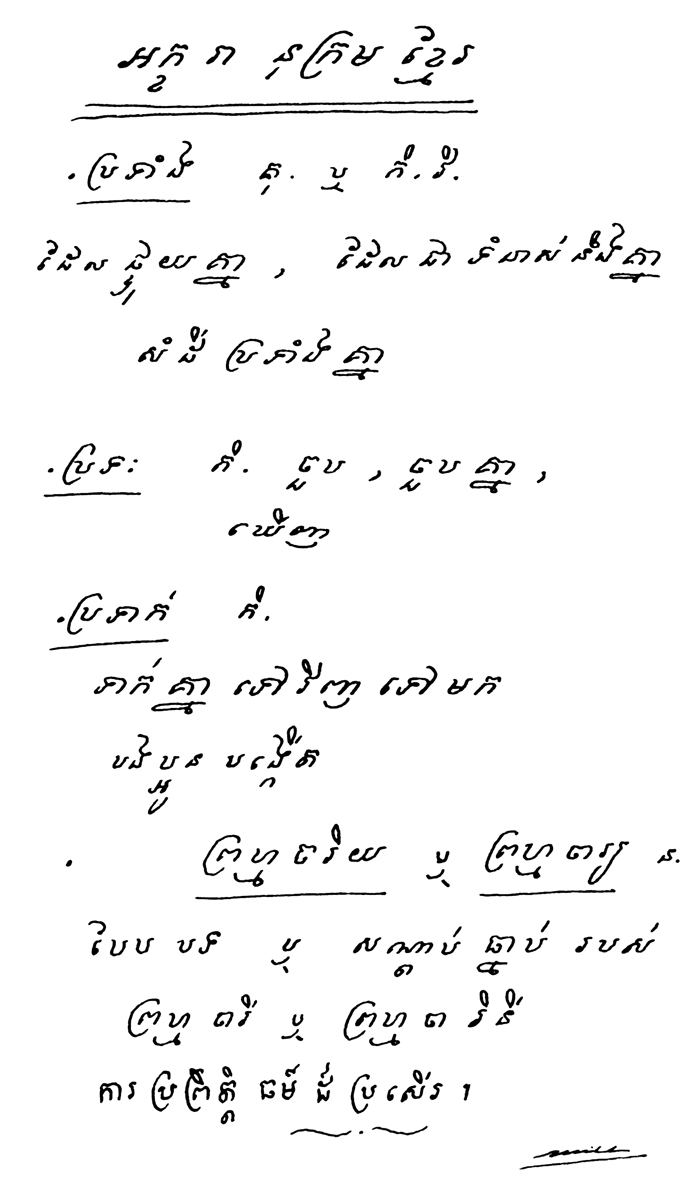 អក្ខរានុក្រមខ្មែរ
.ប្រទាំង គុ. ឬ កិ.វិ.
ដែលផ្ទុយគ្នា , ដែលជាទំនាស់នឹងគ្នា
សំដីប្រទាំងគ្នា
.ប្រទះ កិ. ជួប , ជួបគ្នា ,
ឃើញ
.ប្រទាក់ កិ.
ទាក់គ្នាទៅវិញទៅមក
បងប្អូនបង្កើត
. ព្រហ្មចរិយ ឬ ព្រហ្មចារ្យ ន.
បែបបទ ឬ សណ្ដាប់ធ្នាប់ របស់
ព្រហ្មចារី ឬ ព្រហ្មចារិនី
ការប្រព្រឹត្តិធម៌ដ៏ប្រសើរ ។